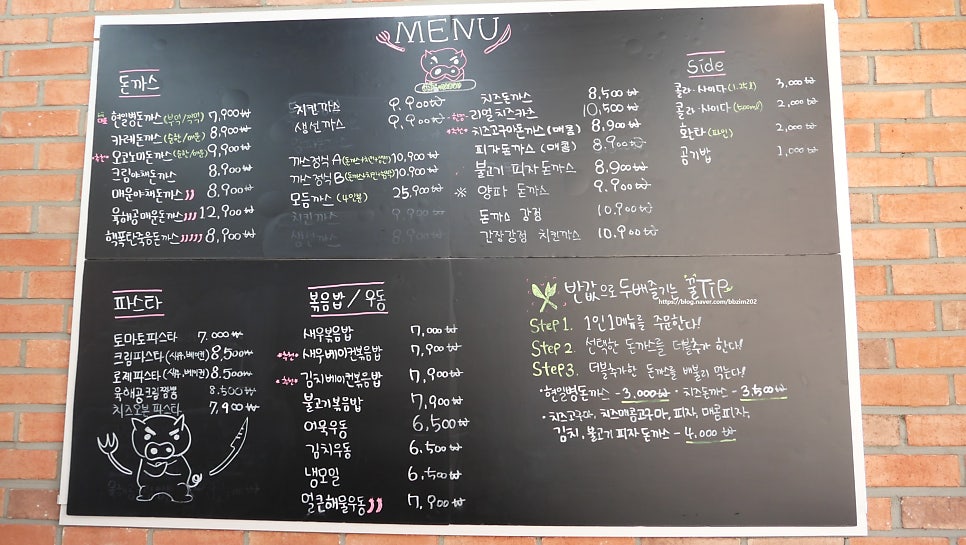 MENU
돈까스
현일병돈까스 (부먹/찍먹) 7,900₩
카레돈까스 (순한/매운) 8,900₩
오코노미돈까스 (순한/매운) 9,900₩
크림야채돈까스 8,900₩
매운야채돈까스 8,900₩
육해공매운돈까스 12,900₩
핵폭탄죽음돈까스 8,900₩
치킨까스 9,900₩
생선까스 9,900₩
까스정식 A 10,900₩
까스정식 B 10,900₩
모듬까스 (4인분) 25,900₩
치킨까스 9,900₩
생선까스 8,900₩
치즈돈까스 8,500₩
리얼치즈카츠 10,500₩
치즈고구마돈까스 (매콤) 8,900₩
피자돈까스 (매콤) 8,900₩
불고기 피자 돈까스 8,900₩
※ 양파 돈까스 9,900₩
돈까스 강정 10,900₩
간장강정 치킨까스 10,900₩
Side
콜라·사이다 (1.25L) 3,000₩
콜라·사이다 (500ml) 2,000₩
환타 (파인) 2,000₩
공기밥 1,000₩
파스타
토마토파스타 7,000₩
크림파스타 (새우,베이컨) 8,500₩
로제파스타 (새우,베이컨) 8,500₩
육해공크림짬뽕 8,500₩
치즈오븐파스타 7,900₩
볶음밥 / 우동
새우볶음밥 7,000₩
추천 새우베이컨볶음밥 7,900₩
추천 김치베이컨볶음밥 7,900₩
불고기볶음밥 7,900₩
어묵우동 6,500₩
김치우동 6,500₩
냉모밀 6,500₩
얼큰해물우동 7,900₩
반값으로 두배즐기는 꿀TIP
https://blog.naver.com/bbzim202
Step 1. 1인 1메뉴를 주문한다!
Step 2. 선택한 돈까스를 더블추가 한다!
Step 3. 더블추가한 돈까스를 배불리 먹는다!
·현일병돈까스 - 3,000₩ · 치즈돈까스 - 3,500₩
·치즈고구마, 치즈매콤고구마, 피자, 매콤피자,
김치, 불고기 피자 돈까스 - 4,000₩